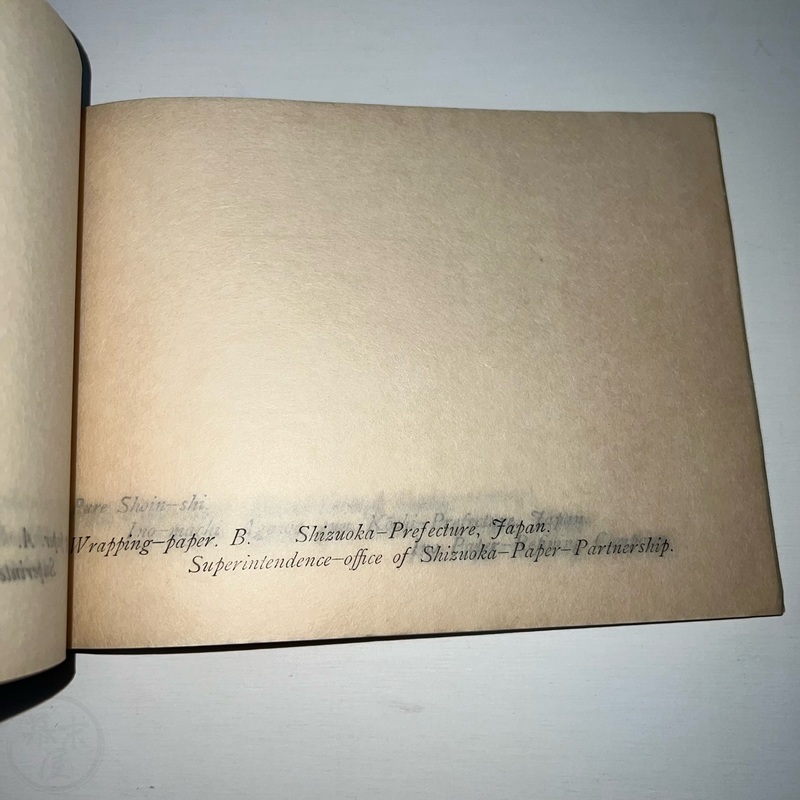 Pure Shoin-shi.
Ino-machi Agawa-gun, Kochi-Prefecture, Japan.
Wrapping-paper. B. Shizuoka-Prefecture, Japan.
Superintendence-office of Shizuoka-Paper-Partnership.